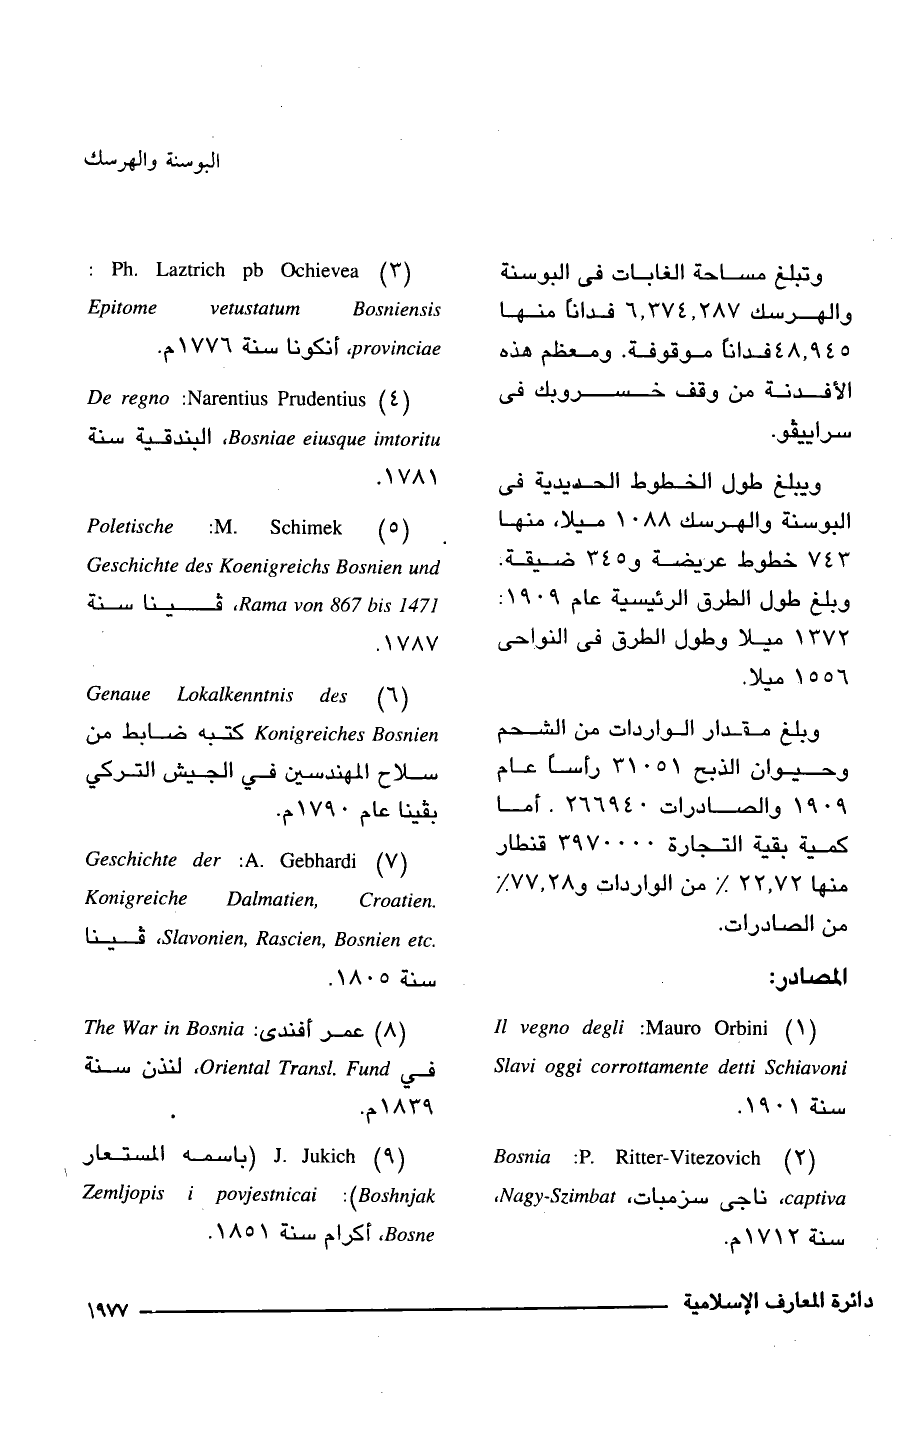 البوسنة والهرسك
وتبلغ مساحة الغابات فى البوسنة
والهرسك ٦,٣٧٤,٢٨٧ فداناً منها
٤٨,٩٤٥فداناً موقوفة. ومعظم هذه
الأفدنة من وقف خسروبك فى
سراييڤو.
ويبلغ طول الخطوط الحديدية فى
البوسنة والهرسك ١٠٨٨ ميلا، منها
٧٤٣ خطوط عريضة و٣٤٥ ضيقة.
وبلغ طول الطرق الرئيسية عام ١٩٠٩:
١٣٧٢ ميلا وطول الطرق فى النواحى
١٥٥٦ ميلا.
وبلغ مقدار الواردات من الشحم
وحيوان الذبح ٣١٠٥١ رأساً عام
١٩٠٩ والصادرات ٢٦٦٩٤٠ . أما
كمية بقية التجارة ٣٩٧٠٠٠٠ قنطار
منها ٢٢,٧٢ ٪ من الواردات و٧٧,٢٨٪
من الصادرات.
المصادر:
(١) Mauro Orbini: Il vegno degli
Slavi oggi corrottamente detti Schiavoni
سنة ١٩٠١.
(٢) P. Ritter-Vitezovich: Bosnia
captiva، ناجى سزمبات، Nagy-Szimbat،
سنة ١٧١٢م.
(٣) Ph. Laztrich pb Ochievea :
Epitome vetustatum Bosniensis
provinciae، أنكونا سنة ١٧٧٦م.
(٤) Narentius Prudentius: De regno
Bosniae eiusque imtoritu، البندقية سنة
١٧٨١.
(٥) M. Schimek: Poletische
Geschichte des Koenigreichs Bosnien und
Rama von 867 bis 1471، ڤيينا سنة
١٧٨٧.
(٦) Genaue Lokalkenntnis des
Konigreiches Bosnien كتبه ضابط من
سلاح المهندسين في الجيش التركي
بڤينا عام ١٧٩٠م.
(٧) A. Gebhardi: Geschichte der
Konigreiche Dalmatien, Croatien.
Slavonien, Rascien, Bosnien etc.، ڤيينا
سنة ١٨٠٥.
(٨) عمر أفندى: The War in Bosnia
في Oriental Transl. Fund، لندن سنة
١٨٣٩م.
(٩) J. Jukich (باسمه المستعار
Boshnjak): Zemljopis i povjestnicai
Bosne، أكرام سنة ١٨٥١.
دائرة المعارف الإسلامية ١٩٧٧